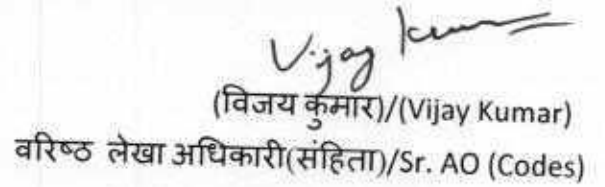 Vijay Kumar
(विजय कुमार)/(Vijay Kumar)
वरिष्ठ लेखा अधिकारी(संहिता)/Sr. AO (Codes)